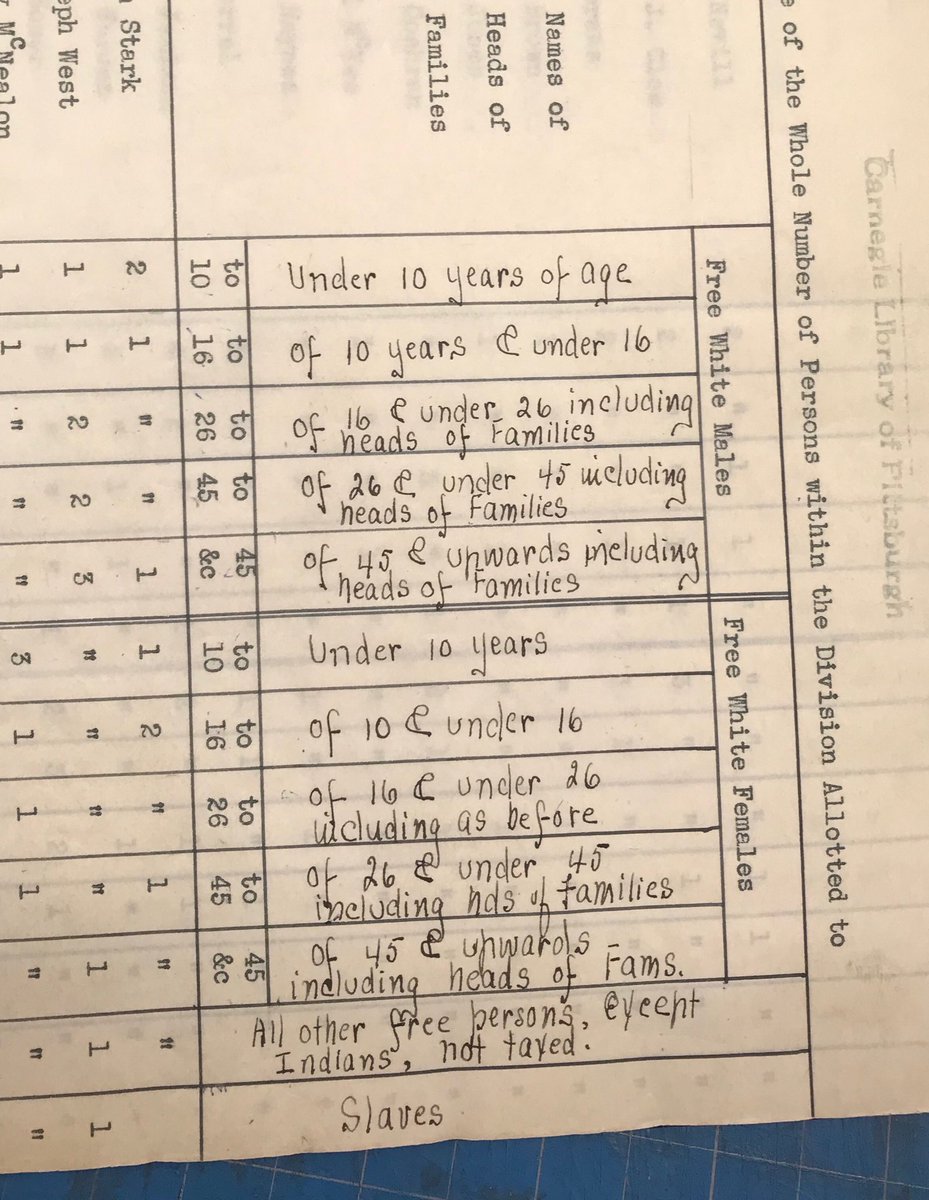 Carnegie Library of Pittsburgh
of the Whole Number of Persons within the Division Allotted to
Free White Males
Free White Females
Names of
Heads of
Families
Under 10 years of age
of 10 years & under 16
of 16 & under 26 including
heads of Families
of 26 & under 45 including
heads of Families
of 45 & upwards including
heads of Families
Under 10 years
of 10 & under 16
of 16 & under 26
including as before
of 26 & under 45
including hds of families
of 45 & upwards
including heads of Fams.
All other free persons, except
Indians, not taxed.
Slaves
to to to to 45 to to to to 45
10 16 26 45 &c 10 16 26 45 &c
Stark 2 1 " " 1 1 2 " 1 " "
West 1 1 2 2 3 " " " " 1 1 1
McNealon 1 1 " " " 3 1 1 1 " " "